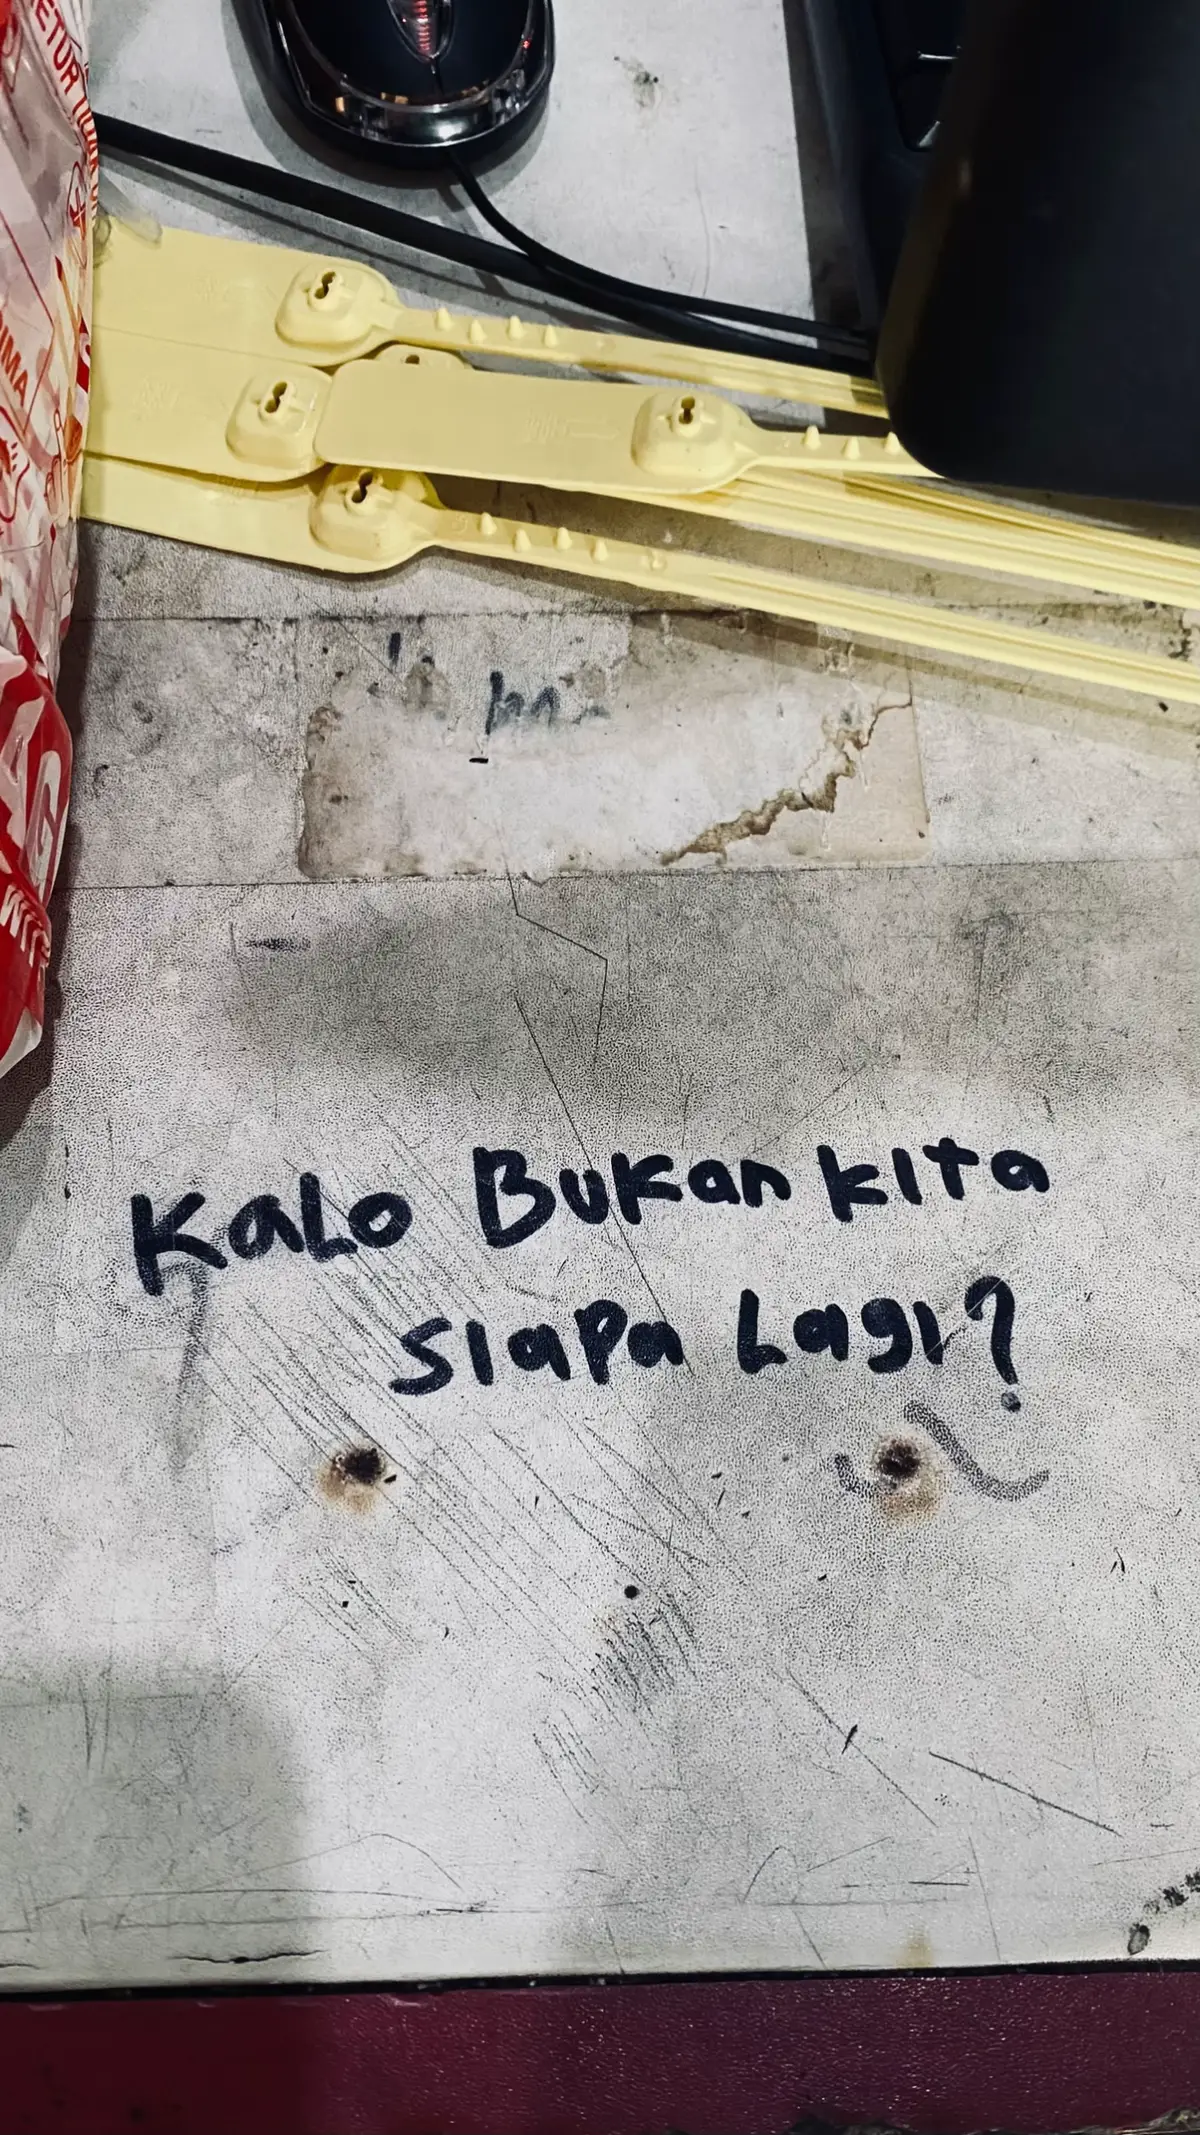 Kalo Bukan kita
siapa Lagi?